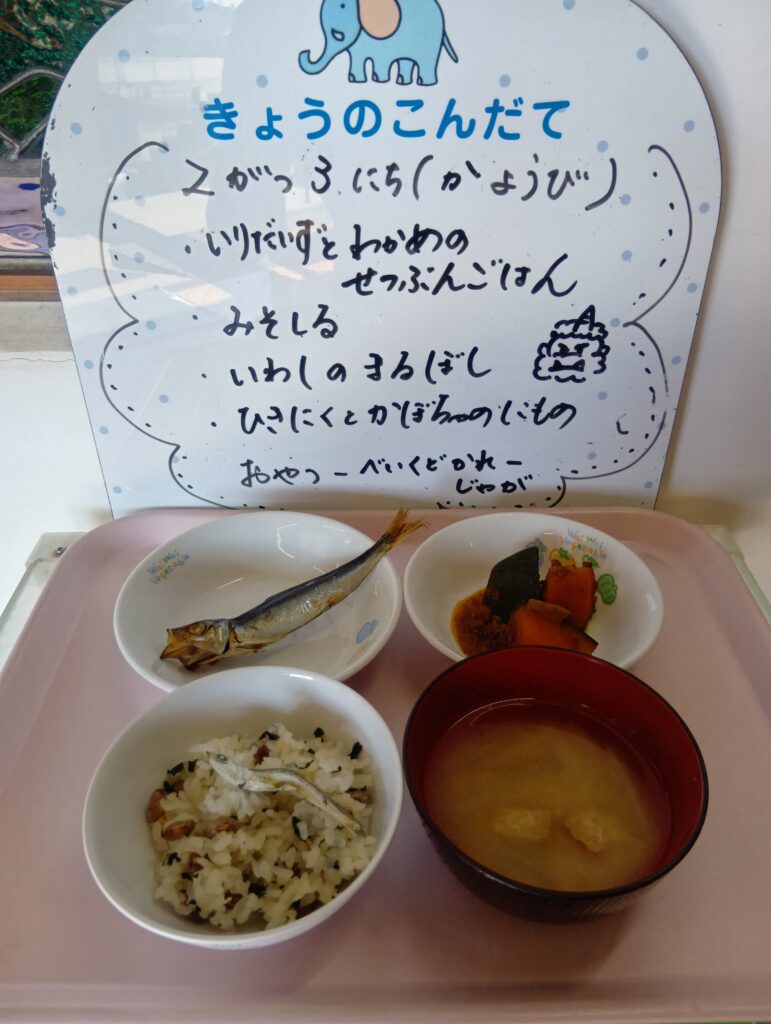 きょうのこんだて
2がつ3にち(かようび)
・いりだいずとわかめの
せつぶんごはん
・みそしる
・いわしのまるぼし
・ひきにくとかぼちゃのにもの
おやつーべいくどかれー
じゃが
Wai Wai
Vegetable
Wai Wai
Vegetable